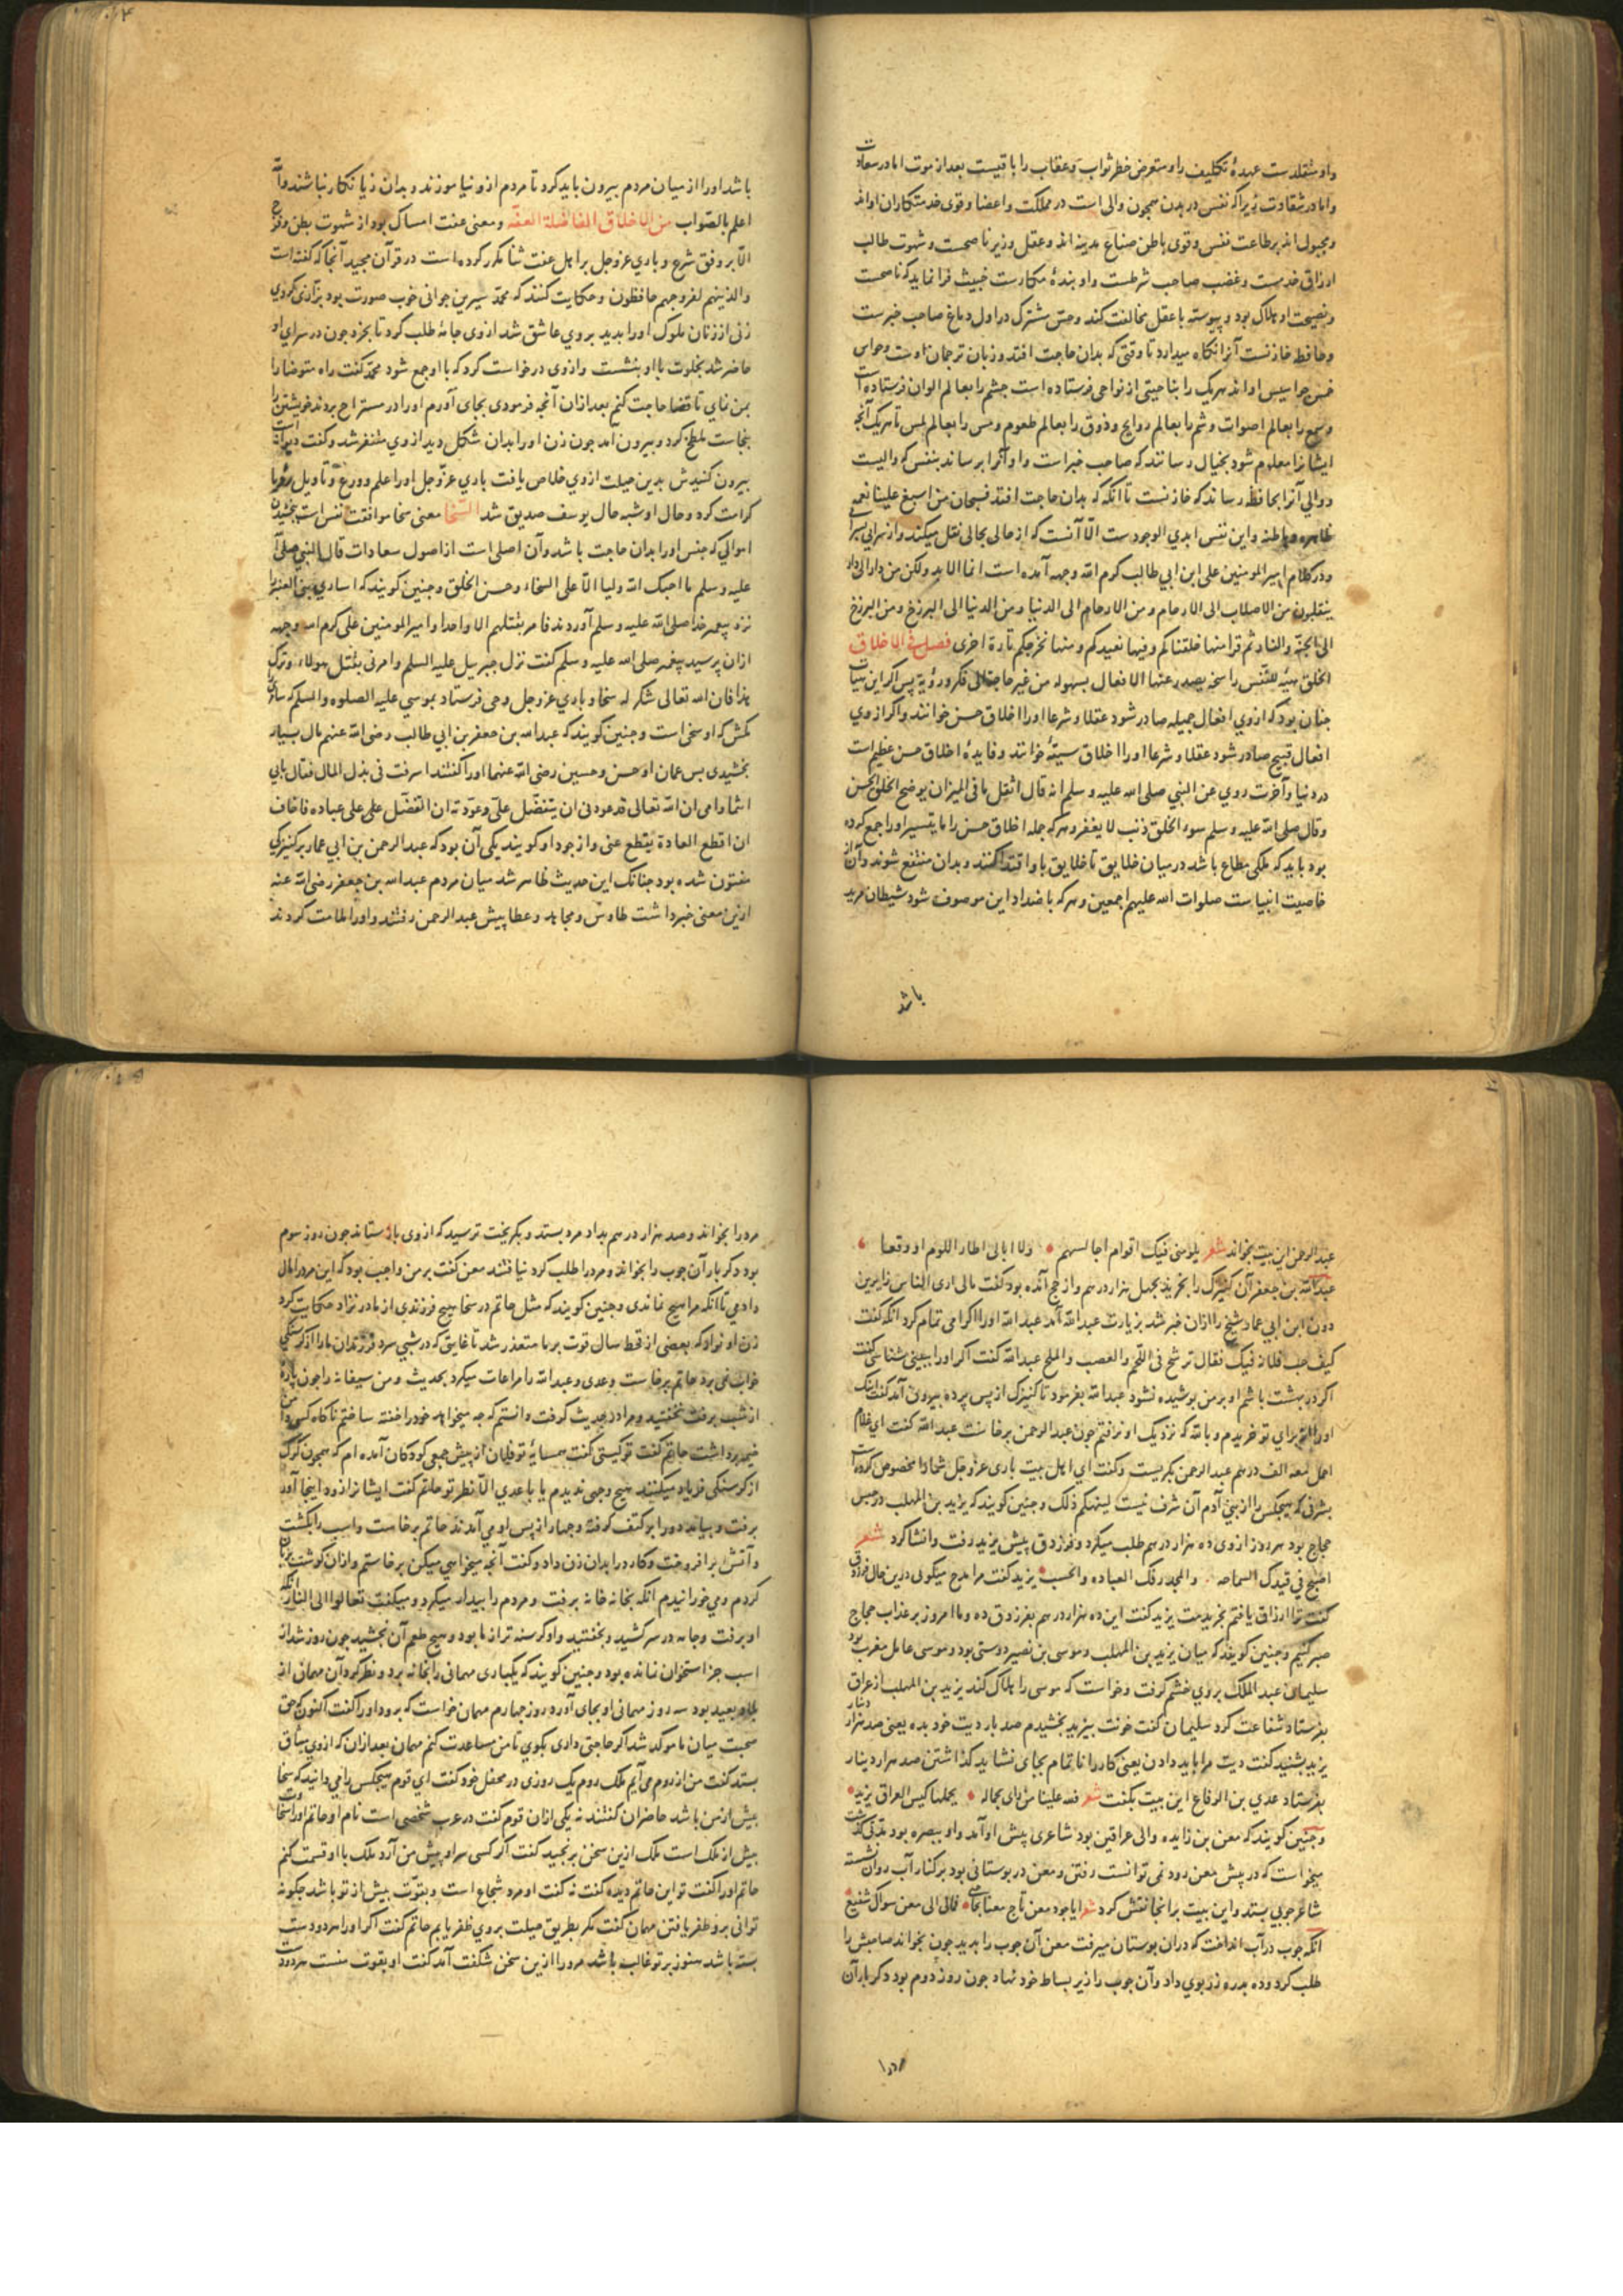 واو متقلدست عهدهٔ تکلیف را و متعرض خطر ثواب و عقاب را باقیست بعد از موت اما در سعادت
واما در شقاوت زیرا که نفس در بدن همچون والی است در مملکت واعضا وقوی خدمتکاران او اند
ومجبول اند بر طاعت نفس وقوی باطن صناع مدینه اند وعقل وزیر ناصحست وشهوت طالب
ارزاق خدمست وغضب صاحب شرطست واو بندهٔ مکارست خبیث فرا نماید که ناصحست
ونصیحت او هلاک بود و پیوسته با عقل مخالفت کند وحس مشترک در اول دماغ صاحب خبرست
وحافظه خازنست آنرا نکاه میدارد تا وقتی که بدان حاجت افتد وزبان ترجمان اوست وحواس
خمس جواسیس او اند هر یک را بناحیتی از نواحی فرستاده است جشم را بعالم الوان فرستاده است
وسمع را بعالم اصوات وشم را بعالم روایح وذوق را بعالم طعوم ولمس را بعالم لمس تا هر یک آنجه
ایشانرا معلوم شود بخیال رسانند که صاحب خبر است واو آنرا برساند بنفس که والیست
ووالی آنرا بحافظه رساند که خازنست تا آنکه که بدان حاجت افتد فسبحان من اسبغ علینا نعمه
ظاهره وباطنه واین نفس ابدی الوجودست الا آنست که از حالی بحالی نقل میکند واز سرایی بسرا
ودر کلام امیر المومنین علی ابن ابی طالب کرم الله وجهه آمده است انما الابد ولکن من دار الی دار
ینقلبون من الاصلاب الی الارحام ومن الارحام الی الدنیا ومن الدنیا الی البرزخ ومن البرزخ
الی الجنة والنار ثم قرا منها خلقناکم وفیها نعیدکم ومنها نخرجکم تارة اخری فصل فی الاخلاق
الخلق هیئة للنفس راسخة یصدر عنها الافعال بسهوله من غیر حاجة الی فکر ورویة پس اکر این هیات
جنان بود که ازوی افعال جمیله صادر شود عقلا وشرعا اورا اخلاق حسن خوانند واکر ازوی
افعال قبیح صادر شود عقلا وشرعا اورا اخلاق سیئه خوانند وفایدهٔ اخلاق حسن عظیم است
در دنیا وآخرت روی عن النبی صلی الله علیه وسلم انه قال اثقل ما فی المیزان یوضع الخلق الحسن
وقال صلی الله علیه وسلم سوء الخلق ذنب لا یغفر وهر که جمله اخلاق حسن را ما یتیسر اورا جمع کرده
بود باید که ملکی مطاع باشد در میان خلایق تا خلایق باو اقتدا کنند وبدان منتفع شوند وآن از
خاصیت انبیاست صلوات الله علیهم اجمعین وهر که باضداد این موصوف شود شیطان مرید
باشد
باشد اورا از میان مردم بیرون باید کرد تا مردم ازو نیاموزند وبدان زیانکار نباشند والله
اعلم بالصواب من الاخلاق الفاضلة العفه ومعنی عفت امساک بود از شهوت بطن وفرج
الا بر وفق شرع وباری عز وجل بر اهل عفت ثنا مکرر کرده است در قرآن مجید آنجا که گفته است
والذینهم لفروجهم حافظون وحکایت کنند که محمد سیرین جوانی خوب صورت بود بزازی کردی
زنی از زنان ملوک اورا بدید بروی عاشق شد ازوی جامه طلب کرد تا بخرد جون در سرای او
حاضر شد بخلوت با او بنشست وازوی درخواست کرد که با او جمع شود محمد کفت راه متوضا را
بمن نمای تا قضا حاجت کنم بعد از ان آنجه فرمودی بجای آورم اورا در مستراح بردند خویشتن را
بنجاست ملطخ کرد وبیرون امد جون زن اورا بدان شکل دید ازوی متنفر شد وکفت دیوانه است
بیرون کنیدش بدین حیلت ازوی خلاص یافت باری عز وجل اورا علم وورع وتاویل رؤیا
کرامت کرد وحال او شبه حال یوسف صدیق شد السخا معنی سخا موافقت نفس است ببخشیدن
اموالی که جنس اورا بدان حاجت باشد وآن اصلی است از اصول سعادات قال النبی صلی الله
علیه وسلم ما احبک الله ولیا الا علی السخاء وحسن الخلق وجنین کویند که اساری بنی العنبر را
نزد پیغمبر خدا صلی الله علیه وسلم آوردند فامر بقتلهم الا واحدا وامیر المومنین علی کرم الله وجهه
ازان پرسید پیغمبر صلی الله علیه وسلم کفت نزل جبریل علیه السلم وامرنی بقتل هولاء وترک
هذا فان الله تعالی شکر له سخا وباری عز وجل وحی فرستاد بموسی علیه الصلوه والسلم که سامری
مکش که او سخی است وجنین کویند که عبد الله بن جعفر بن ابی طالب رضی الله عنهم مال بسیار
بخشیدی پس عمان او حسن وحسین رضی الله عنهما اورا کفتند اسرفت فی بذل المال فقال بابی
انتما وامی ان الله تعالی قد عودنی ان یتفضل علی وعودته ان اتفضل علی عباده فاخاف
ان اقطع العادة یقطع عنی واز جود او کویند یکی آن بود که عبد الرحمن بن ابی عمار بر کنیزکی
مفتون شده بود جنانک این حدیث ظاهر شد میان مردم عبد الله بن جعفر رضی الله عنه
ازین معنی خبر داشت طاوس ومجاهد وعطا پیش عبد الرحمن رفتند واورا ملامت کردند
عبد الرحمن این بیت بخواند شعر یلومنی فیک اقوام اجالسهم ولا ابالی اطار اللوم او وقعا
عبد الله بن جعفر آن کنیزک را بخرید بجهل هزار درهم واز حج آمده بود کفت مالی اری الناس زایرین
دون ابن ابی عمار شیخ را ازان خبر شد بزیارت عبد الله آمد عبد الله اورا اکرامی تمام کرد انکه کفت
کیف حب فلانة فیک فقال ترشح فی اللحم والعصب والملح عبد الله کفت اکر اورا ببینی شناسی کفت
اکر در بهشت باشم او بر من پوشیده نشود عبد الله بفرمود تا کنیزک از پس پرده بیرون آمد کفت اینک
اورا برای تو خریدم وبالله که نزدیک او نرفتم جون عبد الرحمن برخاست عبد الله کفت ای غلام
احمل معه الف درهم عبد الرحمن بکریست وکفت ای اهل بیت باری عز وجل شمارا مخصوص کرده است
بشرفی که هیجکس را از بنی آدم آن شرف نیست لیهنکم ذلک وجنین کویند که یزید بن المهلب در حبس
حجاج بود هر روز ازوی ده هزار درهم طلب میکرد وفرزدق پیش یزید رفت وانشا کرد شعر
اصبح فی قیدک السماحه والمجد وفک العباده والحسب یزید کفت مرا مدح میکوئی درین حال فرزدق
کفت ترا ارزان یافتم بخریدمت یزید کفت این ده هزار درهم بفرزدق ده وما امروز بر عذاب حجاج
صبر کنیم وجنین کویند که میان یزید بن المهلب وموسی بن نصیر دوستی بود وموسی عامل مغرب بود
سلیمان عبد الملک بروی خشم کرفت وخواست که موسی را هلاک کند یزید بن المهلب از عراق
بفرستاد شفاعت کرد سلیمان کفت خونت بیزید بخشیدم صد بار دیت خود بده یعنی صد هزار دینار
یزید بشنید کفت دیت مرا باید دادن یعنی کاررا ناتمام بجای نشاید کذاشتن صد هزار دینار
بفرستاد عدی بن الرقاع این بیت بکفت شعر فلله علینا من رای بحاله یحملها کبس العراق یزید
وجنین کویند که معن بن زایده والی عراقین بود شاعری پیش او آمد واو ببصره بود مدتی کذشت
میخواست که در پیش معن رود نمی توانست رفتن ومعن در بوستانی بود بر کنار آب روان نشسته
شاعر جوبی بستد واین بیت برانجا نقش کرد شعر ایا جود معن ناج معنا بحاجتی فمالی الی معن سواک شفیع
انکه جوب در آب انداخت که دران بوستان میرفت معن آن جوب را بدید جون بخواند صاحبش را
طلب کرد وده بدره زر بوی داد وآن جوب را زیر بساط خود نهاد جون روز دوم بود دکر بار آن
مردرا
مردرا بخواند وصد هزار درهم بداد مرد بستد وبکریخت ترسید که ازوی باز ستاند جون روز سوم
بود دکر بار آن جوب را بخواند ومردرا طلب کرد نیافتند معن کفت بر من واجب بود که این مردرا مال
دادمی تا آنکه مرا هیج نماندی وجنین کویند که مثل حاتم در سخا هیج فرزندی از مادر نزاد حکایت کرد
زن او نوار که بعضی از قحط سال قوت بر ما متعذر شد تا غایتی که در شبی سرد فرزندان مارا از کرسنکی
خواب نمی برد حاتم برخاست وعدی وعبد الله را مراعات میکرد بحدیث ومن سیفانه را جون پاره
از شب برفت بخفتید ومرا در حدیث کرفت دانستم که جه میخواهد خودرا خفته ساختم ناکاه کسی دامن
خیمه برداشت حاتم کفت تو کیستی کفت همسایهٔ تو فلان از پیش جمعی کودکان آمده ام که همجون کرک
از کرسنکی فریاد میکنند هیج وجهی ندیدم یا با عدی الا نظر تو حاتم کفت ایشانرا زود اینجا آور
برفت وبیامد دورا بر کتف کرفته وجهار از پس او می آمدند حاتم برخاست واسب را بکشت
وآتش برافروخت وکارد را بدان زن داد وکفت آنجه میخواهی میکن برخاستم وازان کوشت بریان
کردم ومی خورانیدم انکه بخانه خانه برفت ومردم را بیدار میکرد ومیکفت تعالوا الی النار انکه
او برفت وجامه در سر کشید وبخفتید واو کرسنه تر از ما بود وهیج طعم آن نجشید جون روز شد از
اسب جز استخوان نمانده بود وجنین کویند که یکباری مهمانی را بخانه برد ونظر کرد آن مهمان از
بلاد بعید بود سه روز مهمانی او بجای آورد روز جهارم مهمان خواست که برود اورا کفت اکنون که حق
صحبت میان ما موکد شد اکر حاجتی داری بکوی تا من مساعدت کنم مهمان بعد ازان که ازوی میثاق
بستد کفت من از روم می آیم ملک روم یک روزی در محفل خود کفت ای قوم هیجکس را می دانید که سخا
بیش از من باشد حاضران کفتند نه یکی ازان قوم کفت در عرب شخصی است نام او حاتم اورا سخاوت
بیش از ملک است ملک ازین سخن برنجید کفت اکر کسی سر او پیش من آرد ملک با او قسمت کنم
حاتم اورا کفت تو این حاتم دیدهٔ کفت نه کفت او مرد شجاع است وبقوت بیش از تو باشد جکونه
توانی برو ظفر یافتن مهمان کفت مکر بطریق حیلت بروی ظفر یابم حاتم کفت اکر اورا هر دو دست
بسته باشد هنوز بر تو غالب باشد مردرا ازین سخن شکفت آمد کفت او بقوت منست هر دو دست